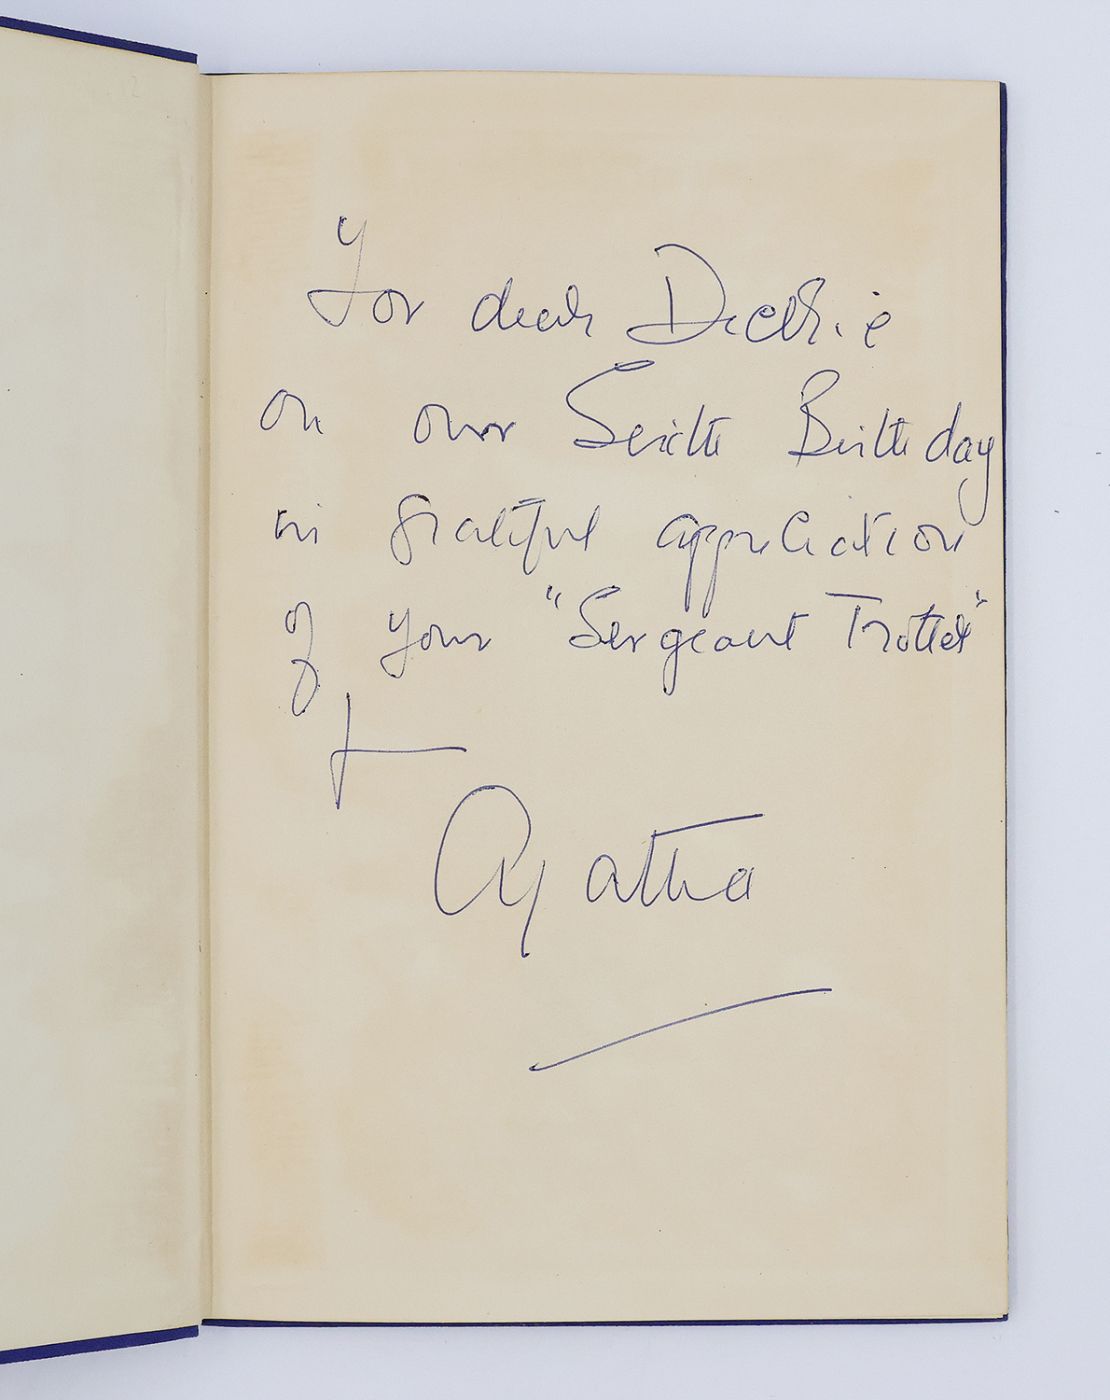 For dear Dickie
on our Sixth Birthday
in grateful appreciation
of your "Sergeant Trotter"
Agatha